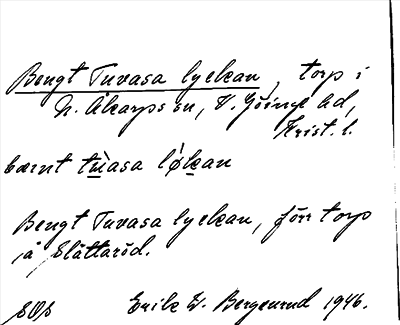 Bengt Tuvasa lyckan, torp i
N. Åkarps sn, V. Göinge hd,
Krist. l.
bœrnt tùasa lǿkan
Bengt Tuvasa lyckan, förr torp
å Slättaröd.
SOS Erik W. Bergenrud 1946.